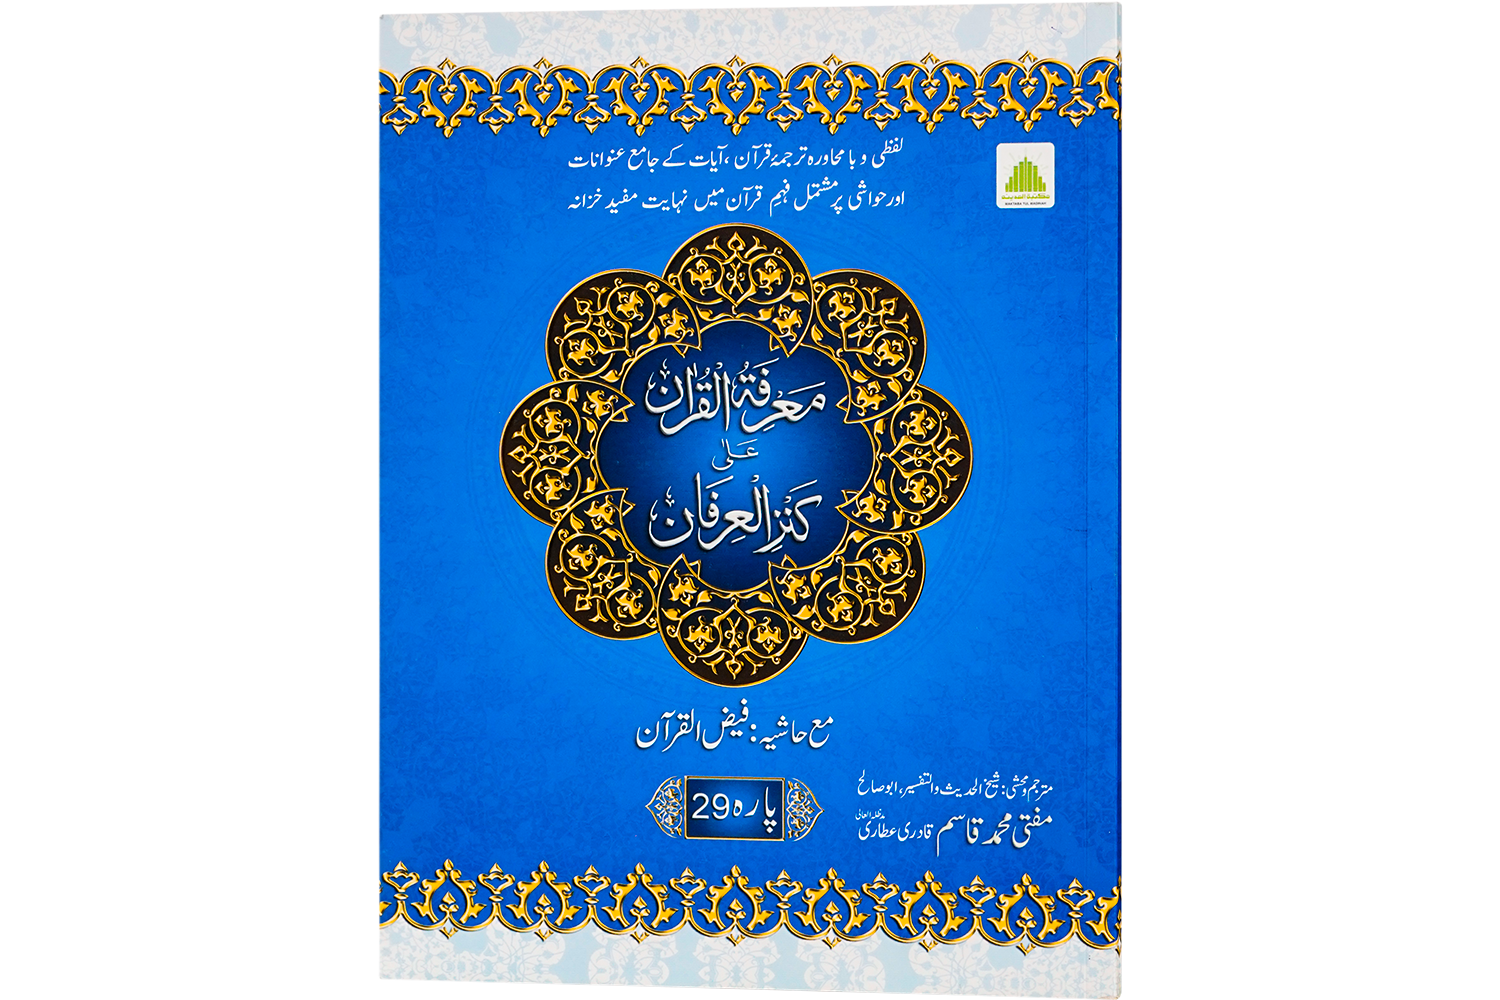 لفظی و با محاورہ ترجمۂ قرآن، آیات کے جامع عنوانات
اور حواشی پر مشتمل فہمِ قرآن میں نہایت مفید خزانہ
مکتبۃ المدینہ
MAKTABA TUL MADINAH
مَعْرِفَۃُ الْقُرْاٰن
عَلٰی
کَنْزِ الْعِرْفَان
مع حاشیہ: فیض القرآن
پارہ 29
مترجم و محشی: شیخ الحدیث والتفسیر، ابو صالح
مفتی محمد قاسم قادری عطاری مدظلہ العالی